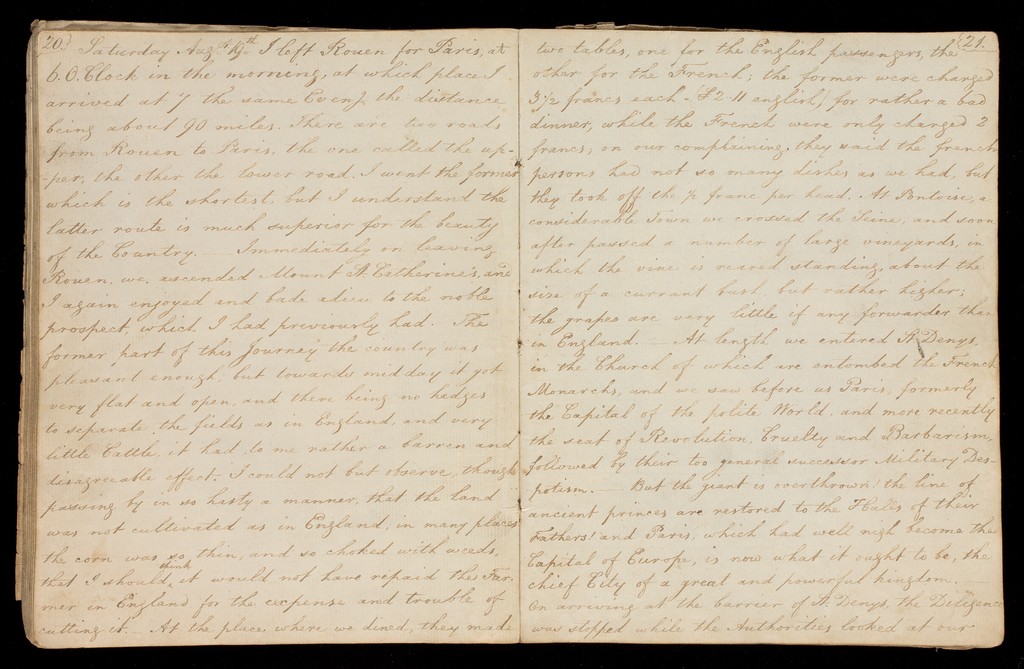 20.
Saturday Augst 19th I left Rouen for Paris, at
6. O.Clock in the morning, at which place I
arrived at 7 the same Eveng. the distance
being about 90 miles. There are two roads
from Rouen to Paris, the one called the up-
-per, the other the lower road. I went the former
which is the shortest, but I understand the
latter route is much superior for the beauty
of the Country. — Immediately on leaving
Rouen, we, ascended Mount St. Catherine's, and
I again enjoyed and bade adieu to the noble
prospect, which I had previously had. The
former part of this Journey the country was
pleasant enough, but towards midday it got
very flat and open, and there being no hedges
to separate the fields as in England, and very
little Cattle, it had to me rather a barren and
disagreeable effect. I could not but observe, though
passing by in so hasty a manner, that the land
was not cultivated as in England, in many places
the corn was so thin, and so choked with weeds,
that I should think it would not have repaid the Far-
mer in England for the expense and trouble of
cutting it. — At the place where we dined, they made
21.
two tables, one for the English passengers, the
other for the French; the former were charged
3 1/2 francs each - (£2-11 english) for rather a bad
dinner, while the French were only charged 2
francs, on our complaining, they said the french
persons had not so many dishes as we had, but
they took off the 1/2 franc per head. At Pontoise, a
considerable Town we crossed the Seine, and soon
after passed a number of large vineyards, in
which the vine is reared standing, about the
size of a currant bush, but rather higher;
the grapes are very little if any forwarder than
in England. — At length we entered St Denys,
in the Church of which are entombed the French
Monarchs, and we saw before us Paris, formerly
the Capital of the polite World, and more recently
the seat of Revolution, Cruelty and Barbarism,
followed by their too general successor Military Des-
potism. — But the giant is overthrown! the line of
ancient princes are restored to the Halls of their
Fathers! and Paris, which had well nigh become the
Capital of Europe, is now what it ought to be, the
chief City of a great and powerful kingdom.
On arriving at the barrier of St. Denys, the Diligence
was stopped while the Authorities looked at our